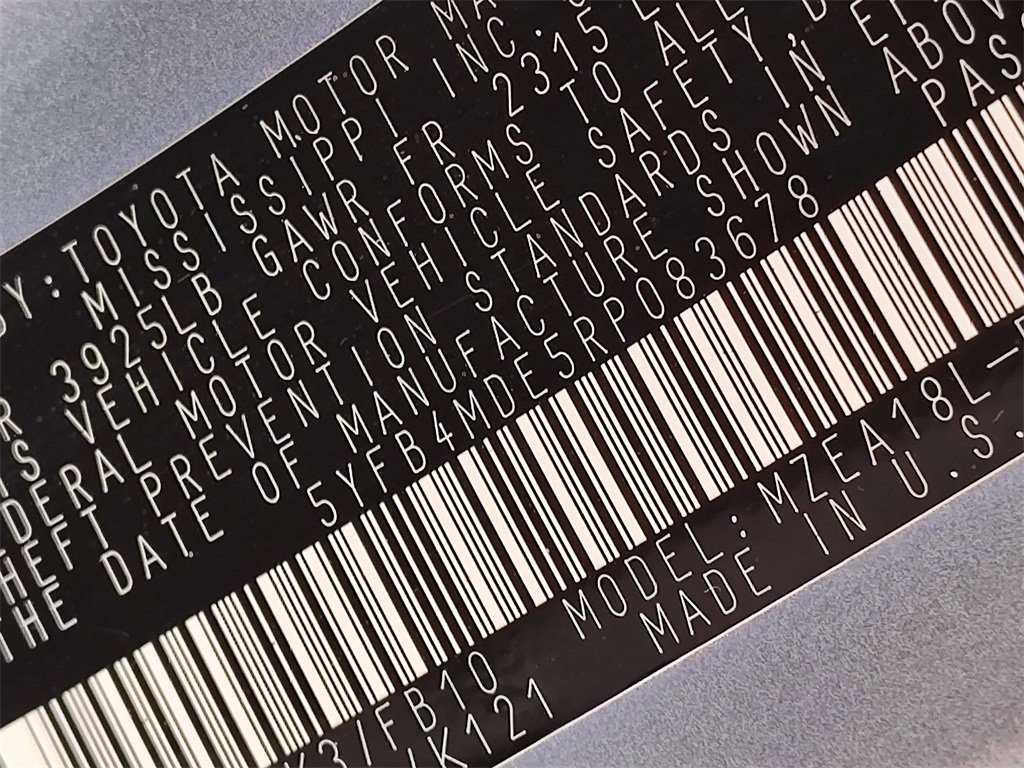 Y:TOYOTA MOTOR MA
MISSISSIPPI INC.
R 3925LB GAWR FR 2315 L
IS VEHICLE CONFORMS TO ALL
DERAL MOTOR VEHICLE SAFETY,
HEFT PREVENTION STANDARDS IN
THE DATE OF MANUFACTURE SHOWN ABOV
5YFB4MDE5RP083678 PAS
/FB10 MODEL:MZEA18L-
K121 MADE IN U.S.